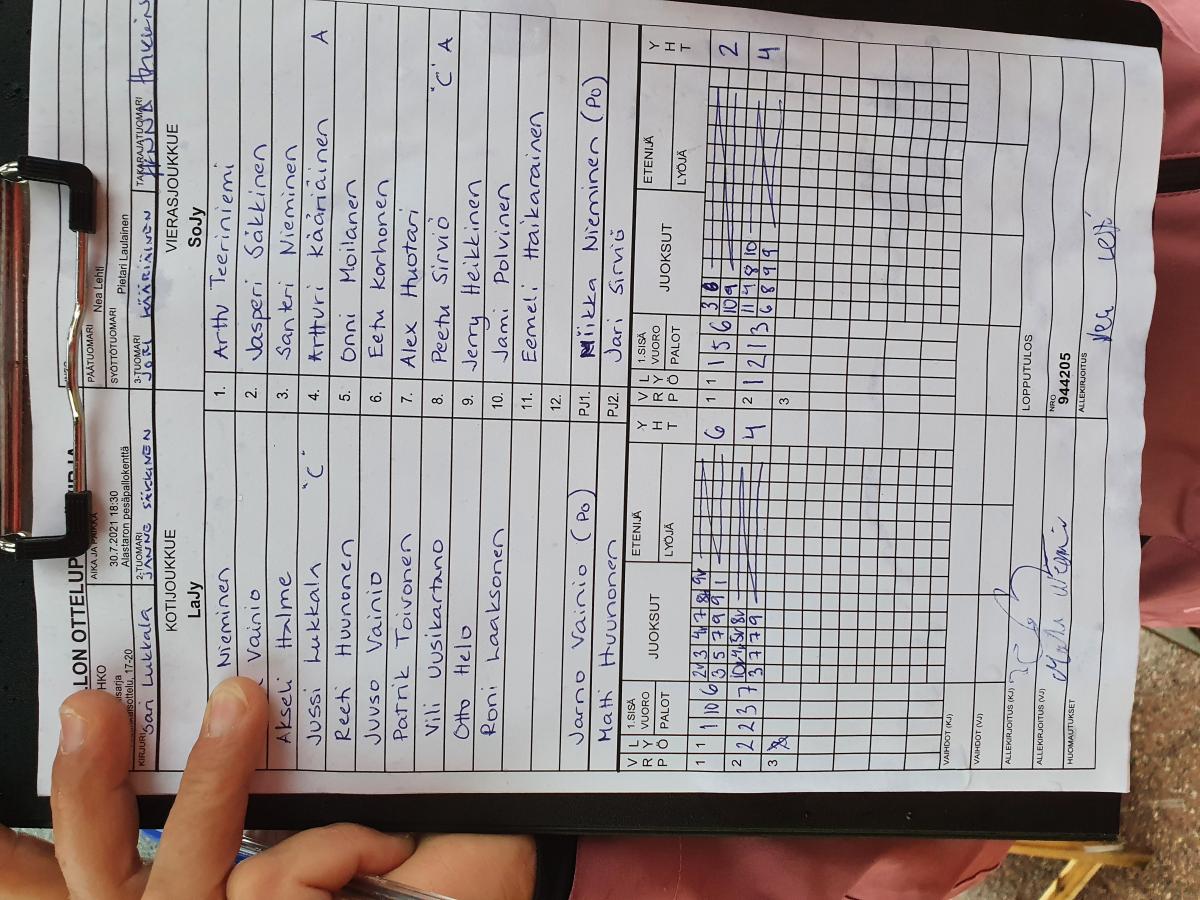 LON OTTELUP
HKO
AIKA JA PAIKKA
30.7.2021 18:30
Alastaron pesäpallokenttä
PÄÄTUOMARI
Nea Lehti
SYÖTTÖTUOMARI
Pietari Laulainen
17-20
KIRJURI
Sari Lukkala
2-TUOMARI
JANNE SÄKKINEN
3-TUOMARI
JORI KÄÄRIÄINEN
TAKARAJATUOMARI
KOTIJOUKKUE
LaJy
VIERASJOUKKUE
SoJy
Nieminen
1. Arttu Teeriniemi
Vainio
2. Jasperi Säkkinen
Akseli Halme
3. Santeri Nieminen
Jussi Lukkala "C"
4. Artturi Kääriäinen A
Reeti Huunonen
5. Onni Moilanen
Juuso Vainio
6. Eetu Korhonen
Patrik Toivonen
7. Alex Huotari
Vili Uusikartano
8. Peetu Sirviö "C" A
Otto Helo
9. Jerry Heikkinen
Roni Laaksonen
10. Jami Polvinen
11. Eemeli Haikarainen
12.
Jarno Vainio (PO)
PJ1. Miikka Nieminen (PO)
Matti Huunonen
PJ2. Jari Sirviö
V R P L Y Ö 1.SISÄ VUORO PALOT JUOKSUT ETENIJÄ LYÖJÄ Y H T
V R P L Y Ö 1.SISÄ VUORO PALOT JUOKSUT ETENIJÄ LYÖJÄ Y H T
1 1 10 6
3 5 7 9 9 1
6
1 1 1 5 6
10 9
2
2 2 3 7
3 7 7 9
4
2 1 2 1 3
11 4 8 10
6 8 9 9
4
3
3
VAIHDOT (KJ)
VAIHDOT (VJ)
ALLEKIRJOITUS (KJ)
LOPPUTULOS
ALLEKIRJOITUS (VJ)
NRO
944205
HUOMAUTUKSET
ALLEKIRJOITUS